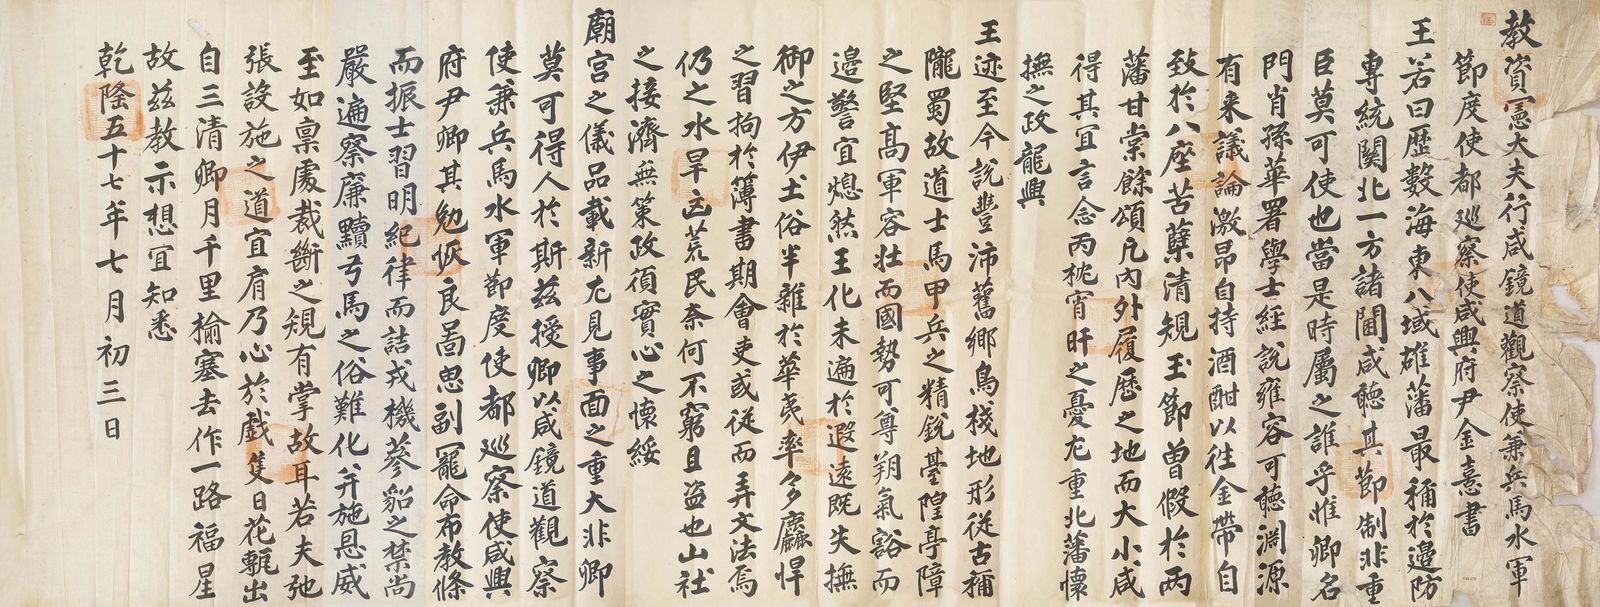 教資憲大夫行咸鏡道觀察使兼兵馬水軍
節度使都巡察使咸興府尹金憙書
王若曰歷數海東八域雄藩最稱於邊防
專統關北一方諸閫咸聽其節制非重
臣莫可使也當是時屬之誰乎惟卿名
門肖孫華署學士經說雍容可聽淵源
有來議論激昂自持酒酣以往金帶自
致於八座苦蘗清規玉節曾假於兩
藩甘棠餘頌凡內外履歷之地而大小咸
得其宜言念丙枕宵旰之憂尤重北藩懷
撫之政龍興
王迹至今說豐沛舊鄉鳥棧地形從古稱
隴蜀故道士馬甲兵之精銳臺隍亭障
之堅高軍容壯而國勢可尊朔氣豁而
邊警宜熄然王化未遍於遐遠既失撫
御之方伊土俗半雜於華夷率多麤悍
之習拘於簿書期會吏或從而弄文法焉
仍之水旱立荒民奈何不窮且盜也山社
之接濟無策政須實心之懷綏
廟宮之儀品載新尤見事面之重大非卿
莫可得人於斯茲授卿以咸鏡道觀察
使兼兵馬水軍節度使都巡察使咸興
府尹卿其勉恢良啚思副冞寵命布教條
而振士習明紀律而詰戎機蔘貂之禁尚
嚴遍察廉黷弓馬之俗難化幷施恩威
至如稟處裁斷之規有掌故耳若夫弛
張設施之道宜有乃心於戲隻日花甎出
自三清卿月千里楡塞去作一路福星
故茲教示想宜知悉
乾隆五十七年七月初三日